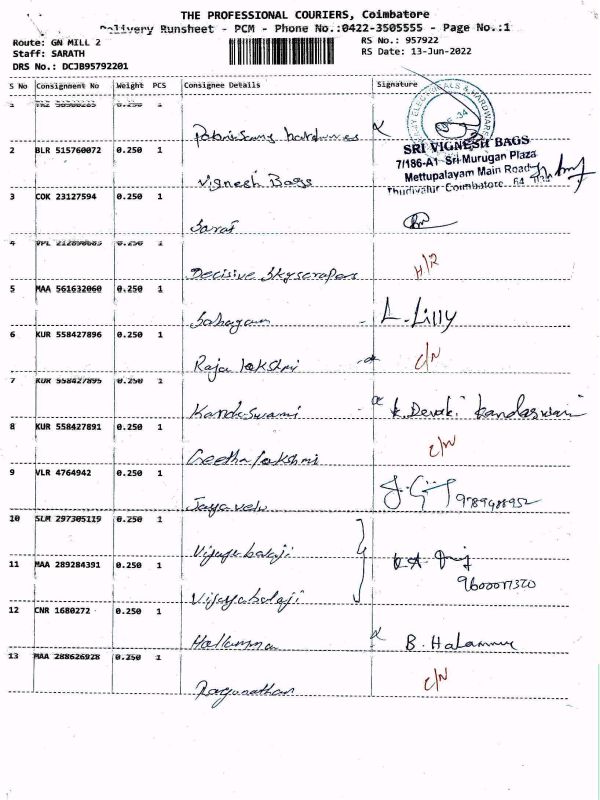 THE PROFESSIONAL COURIERS, Coimbatore
Delivery Runsheet - PCM - Phone No.:0422-3505555 - Page No.:1
Route: GN MILL 2
RS No.: 957922
Staff: SARATH
RS Date: 13-Jun-2022
DRS No.: DCJB95792201
S No Consignment No Weight PCS Consignee Details Signature
0.250 1
hardwares
2 BLR 515760072 0.250 1
Vignesh Bags
SRI VIGNESH BAGS
7/186-A1 Sri Murugan Plaza
Mettupalayam Main Road
Thudiyalur Coimbatore
3 COK 23127594 0.250 1
Sarat
4 0.250 1
Decisive Skyscrapers H/R
5 MAA 561632060 0.250 1
Sahayam L. Lilly
6 KUR 558427896 0.250 1
Raja lakshmi C/N
7 KUR 558427895 0.250 1
Kandaswami K. Devaki Kandaswami
8 KUR 558427891 0.250 1
Geetha lakshmi C/N
9 VLR 4764942 0.250 1
Jayavelu 9789488952
10 SLM 297305119 0.250 1
Vijaya balaji
11 MAA 289284391 0.250 1
Vijaya balaji
12 CNR 1680272 0.250 1
Hallamma B.
13 MAA 288626928 0.250 1
Ragunathan C/N